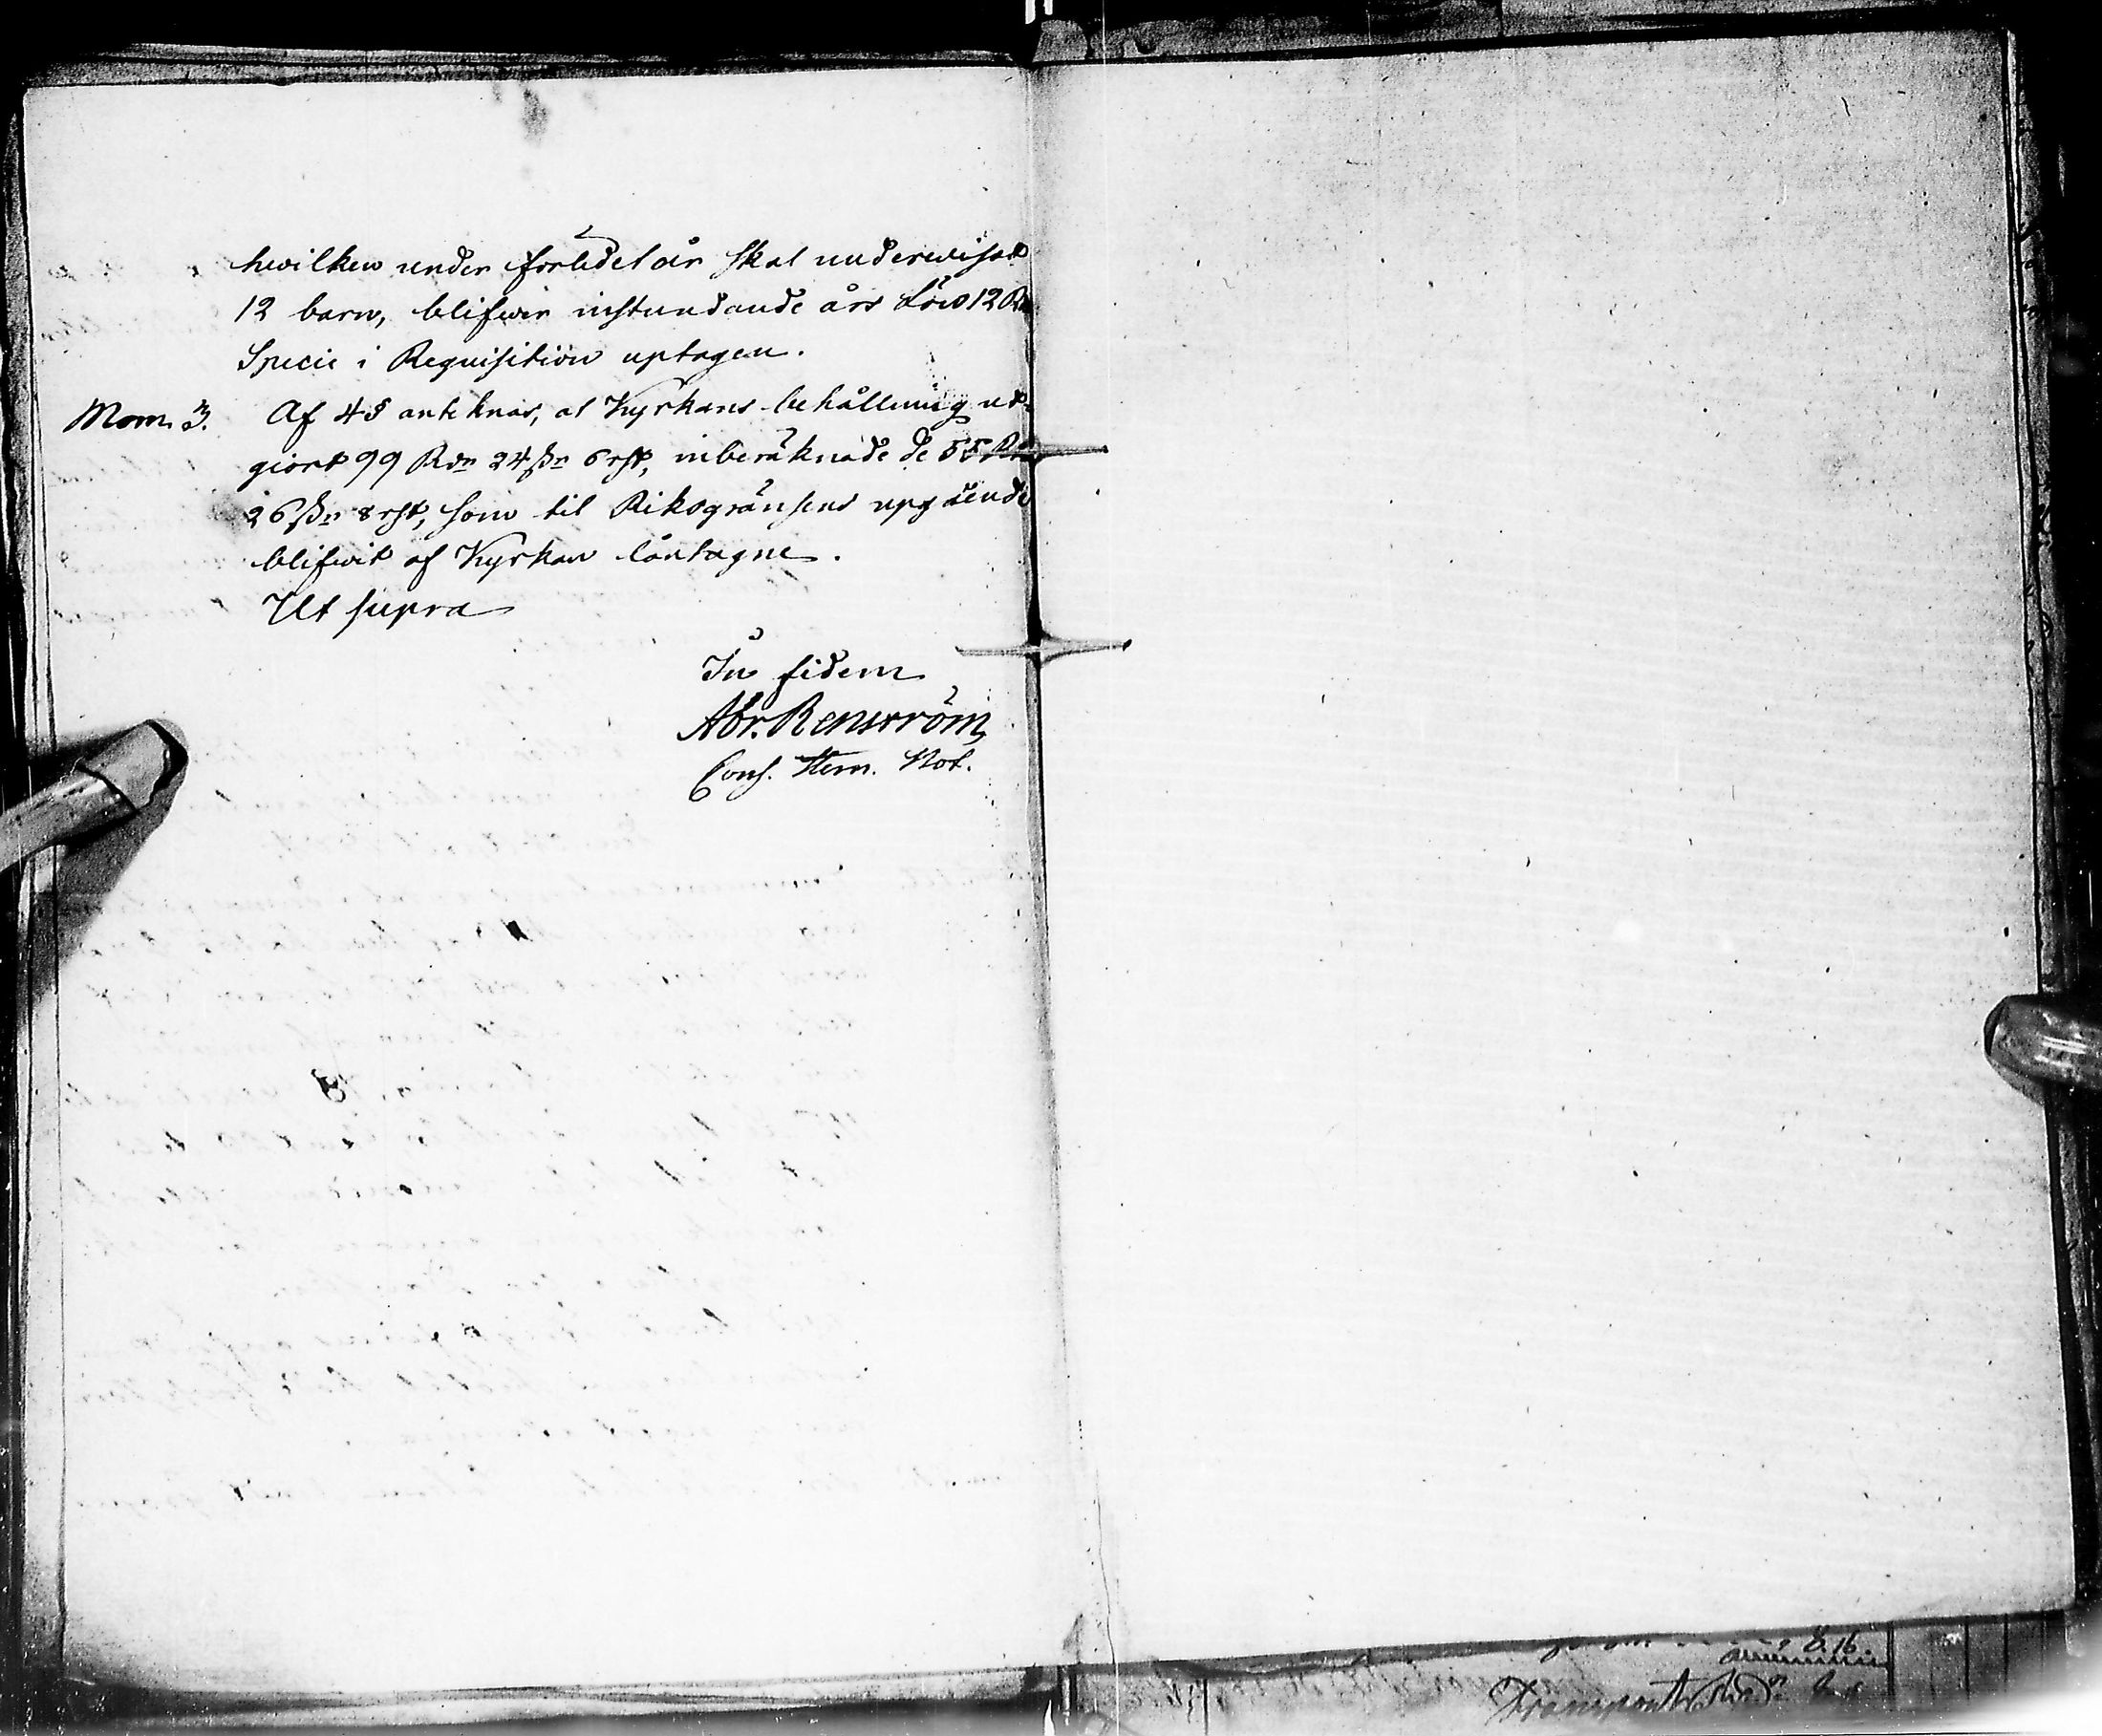 hwilken under förledet år skal underwisat
12 barn, blifwer instundande års Lön 12 Rd
Specie i Requisition uptagen.
Mom. 3. Af 4 § anteknas, at Kyrkans behållning ut-
giort 99 Rdr 24 ßr 6 rst, inberäknade de 55 Rdr
26 ßr 8 rst, som til Riksgränsens upgående
blifwit af Kyrkan låntagne.
Ut supra
In fidem
Abr. Renström
Cons. Hern. Not.
8.16.
Transport